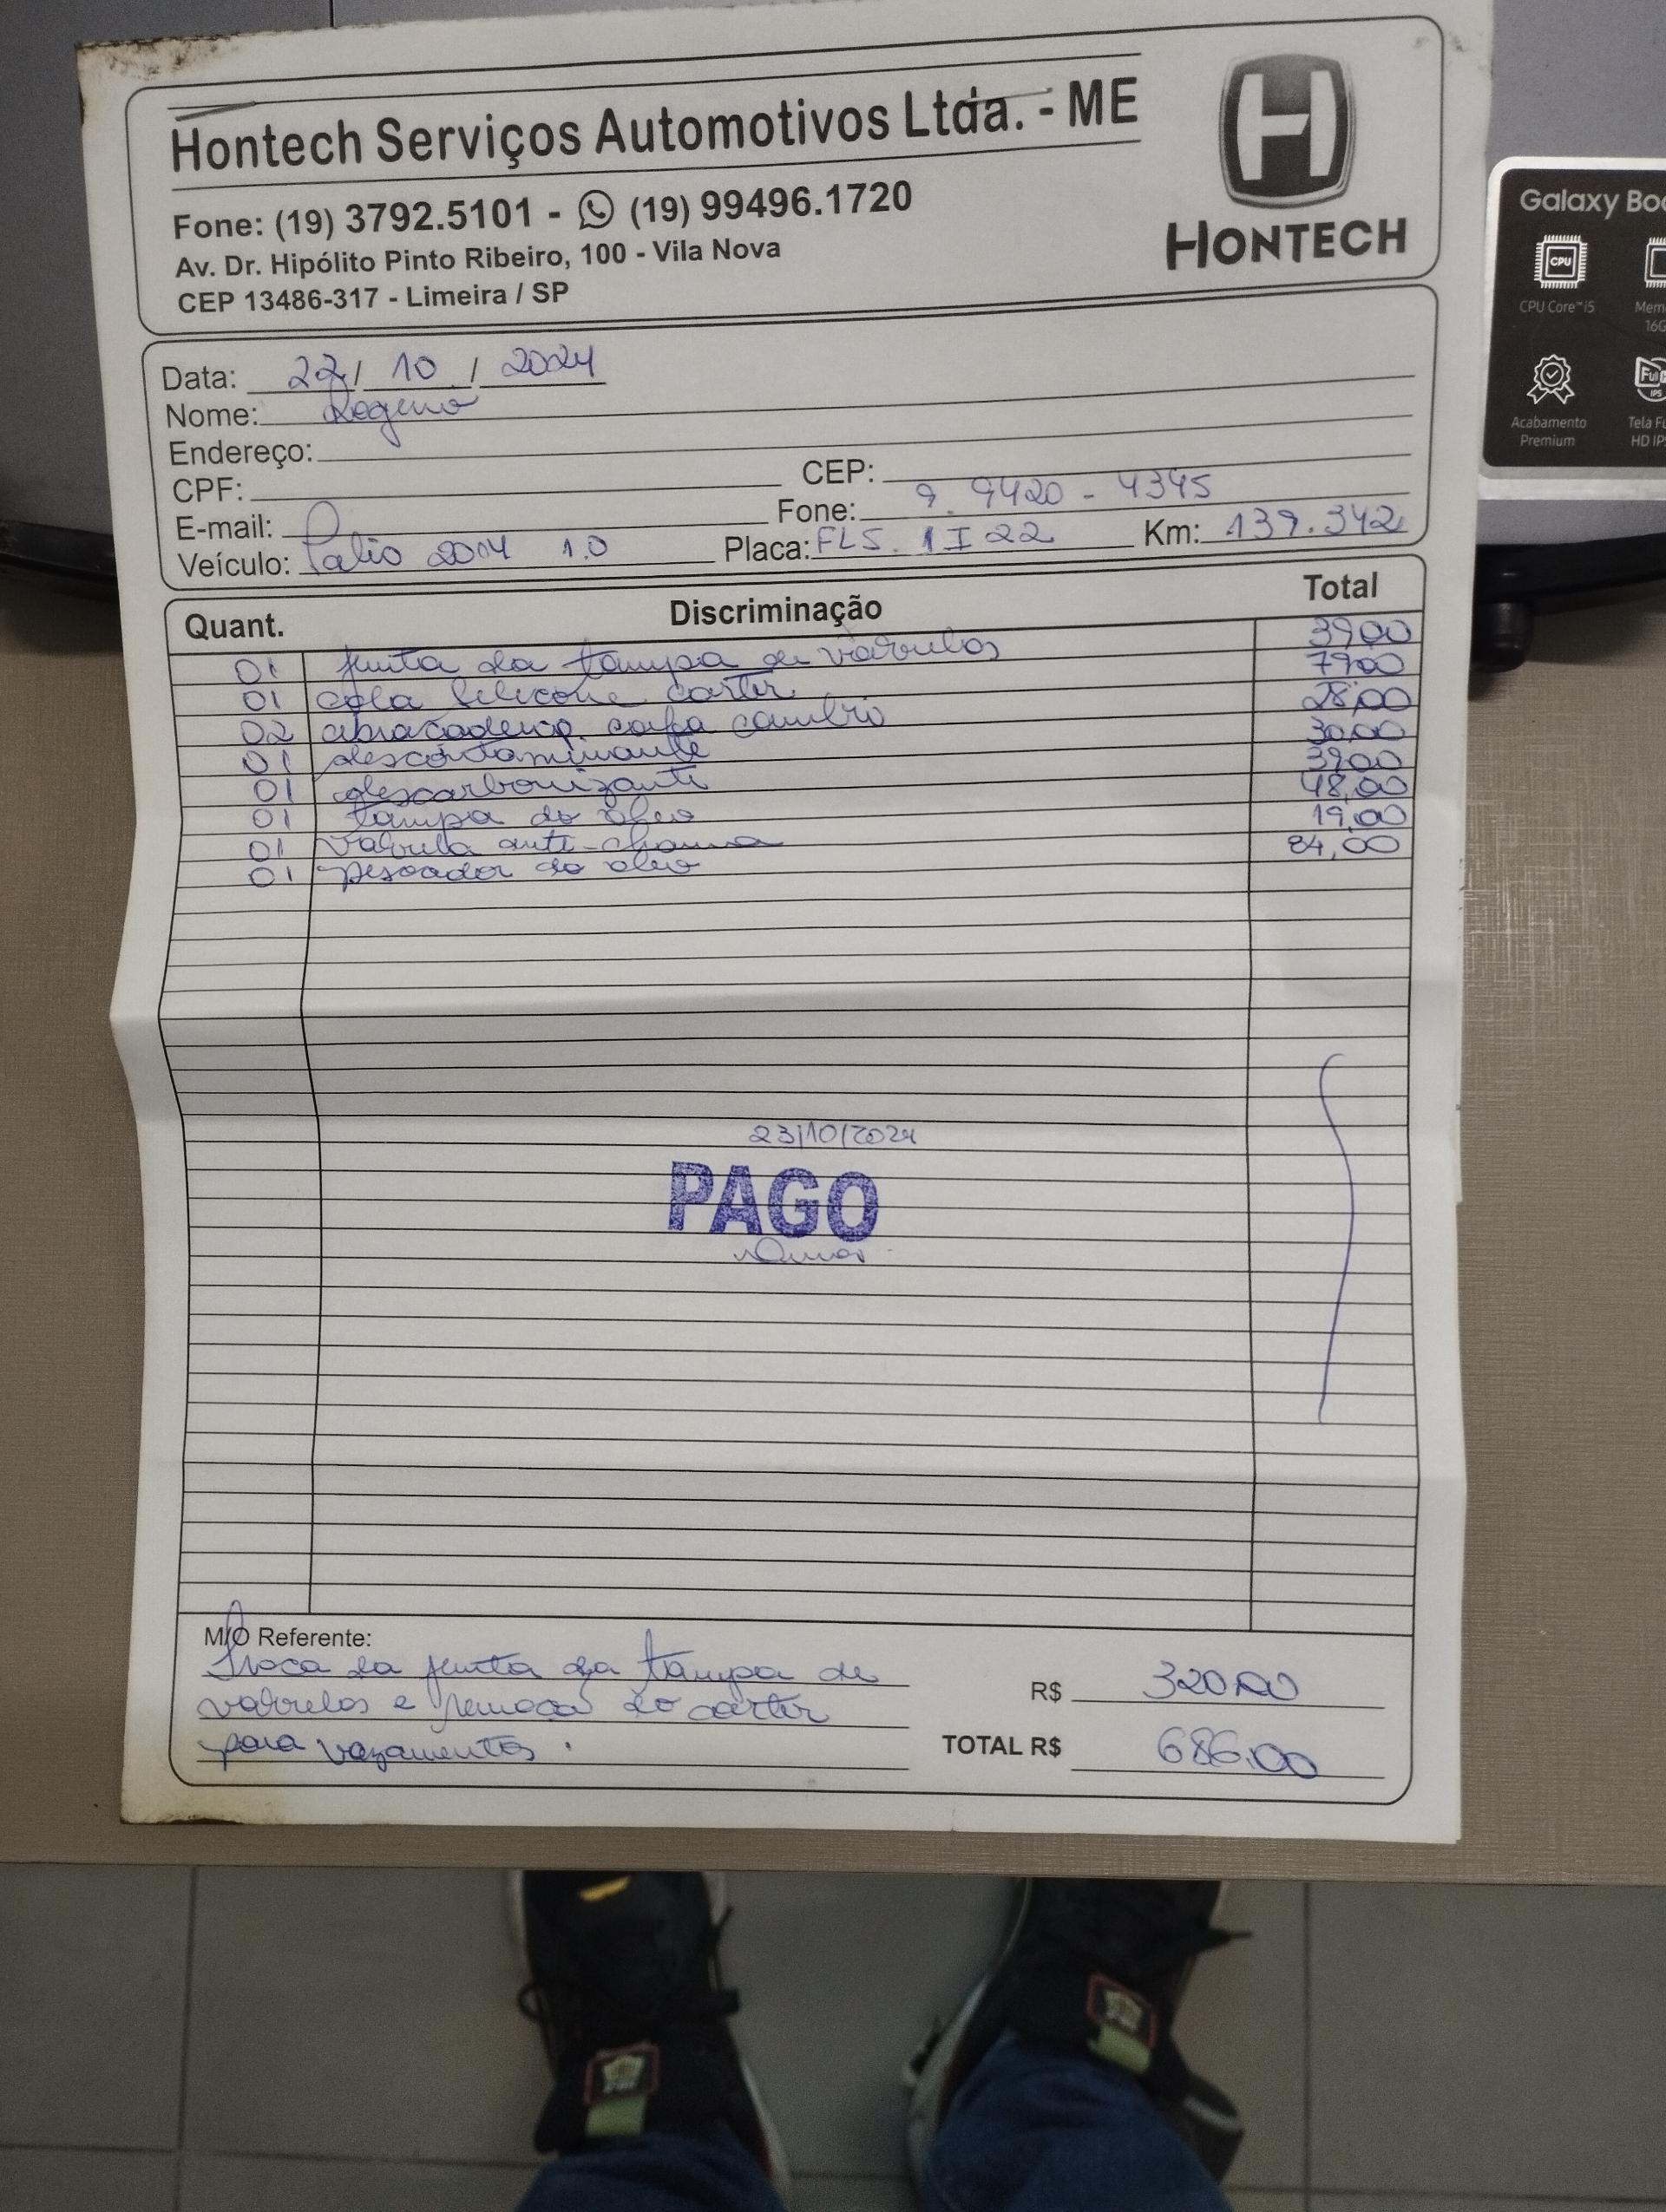 Hontech Serviços Automotivos Ltda. - ME
Fone: (19) 3792.5101 - (19) 99496.1720
Av. Dr. Hipólito Pinto Ribeiro, 100 - Vila Nova
CEP 13486-317 - Limeira / SP
H
HONTECH
Galaxy Boo
CPU
CPU Core™ i5
Mem
16G
Acabamento
Premium
Tela Fu
HD IPS
Data: 22/ 10 / 2024
Nome:
Endereço:
CPF: CEP:
E-mail: Fone: 9.9420-4345
Veículo: Palio 2014 1.0 Placa: FLS.1I22 Km: 139.342
Quant. Discriminação Total
01 junta da tampa de válvulas 39,00
01 cola silicone carter 79,00
02 abraçadeira coifa cambio 28,00
01 descontaminante 30,00
01 descarbonizante 39,00
01 tampa do óleo 48,00
01 Valvula anti-chama 19,00
01 pescador do oleo 84,00
23/10/2024
PAGO
M/O Referente:
Troca da junta da tampa de
valvulas e remoça do carter R$ 320,00
para vazamentos. TOTAL R$ 686,00